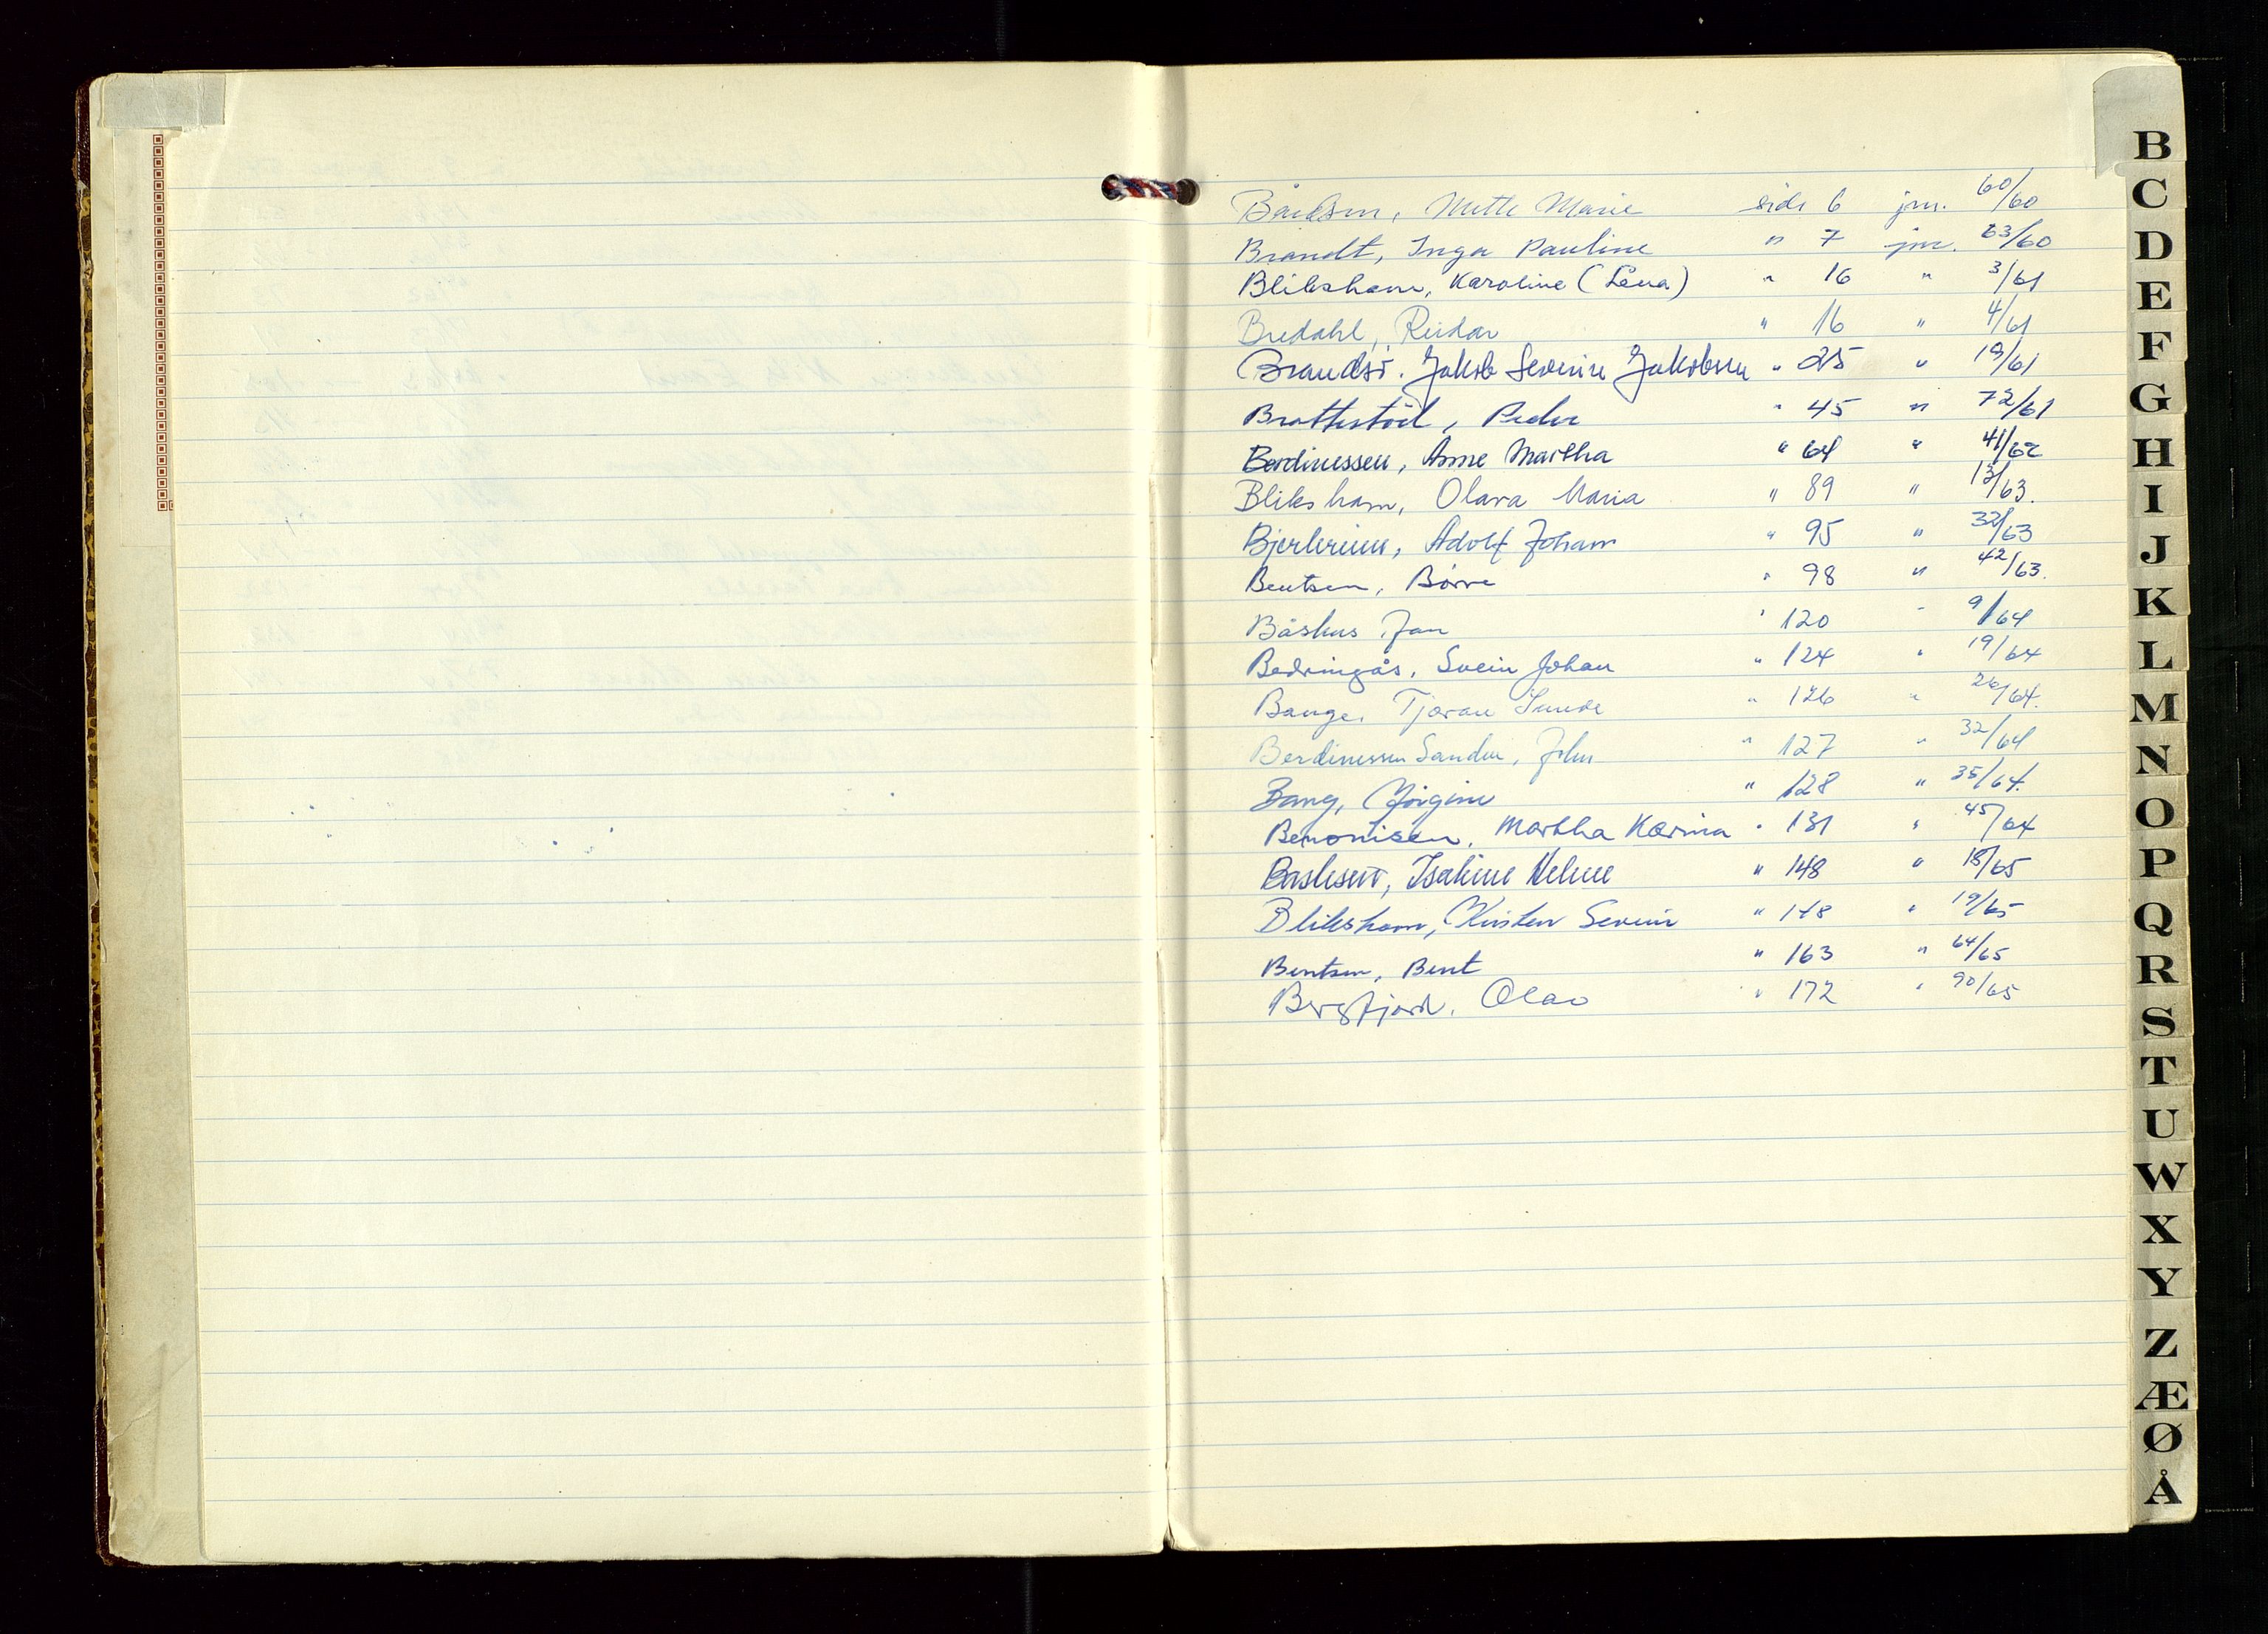 Bårdsen, Mette Marie side 6 jnr. 60/60
Brandt, Inga Pauline " 7 jnr. 63/60
Bliksham, Karoline (Lena) " 16 " 3/61
Bredahl, Reidar " 16 " 4/61
Brandsö. Jakob Severin Jakobsen " 25 " 19/61
Brattestöd, Peder " 45 " 72/61
Berdinessen, Anne Martha " 64 " 41/62
Bliksham, Olava Maria " 89 " 13/63.
Bjerkreim, Adolf Johan " 95 " 32/63
Bentsen, Børre " 98 " 42/63.
Båshus Jan " 120 " 9/64
Bedringås, Svein Johan " 124 " 19/64
Bauge, Tjøran Sunde " 126 " 26/64.
Berdinessen Sandve, John " 127 " 32/64
Bang, Jörgine " 128 " 35/64.
Benonisen, Martha Karina " 131 " 45/64
Isakine Helene " 148 " 18/65
Bliksham, Kirsten Severin " 148 " 19/65
Bentsen, Bent " 163 " 64/65
Bergfjord, Olav " 172 " 90/65
B
C
D
E
F
G
H
I
J
K
L
M
N
O
P
Q
R
S
T
U
W
X
Y
Z
Æ
Ø
Å